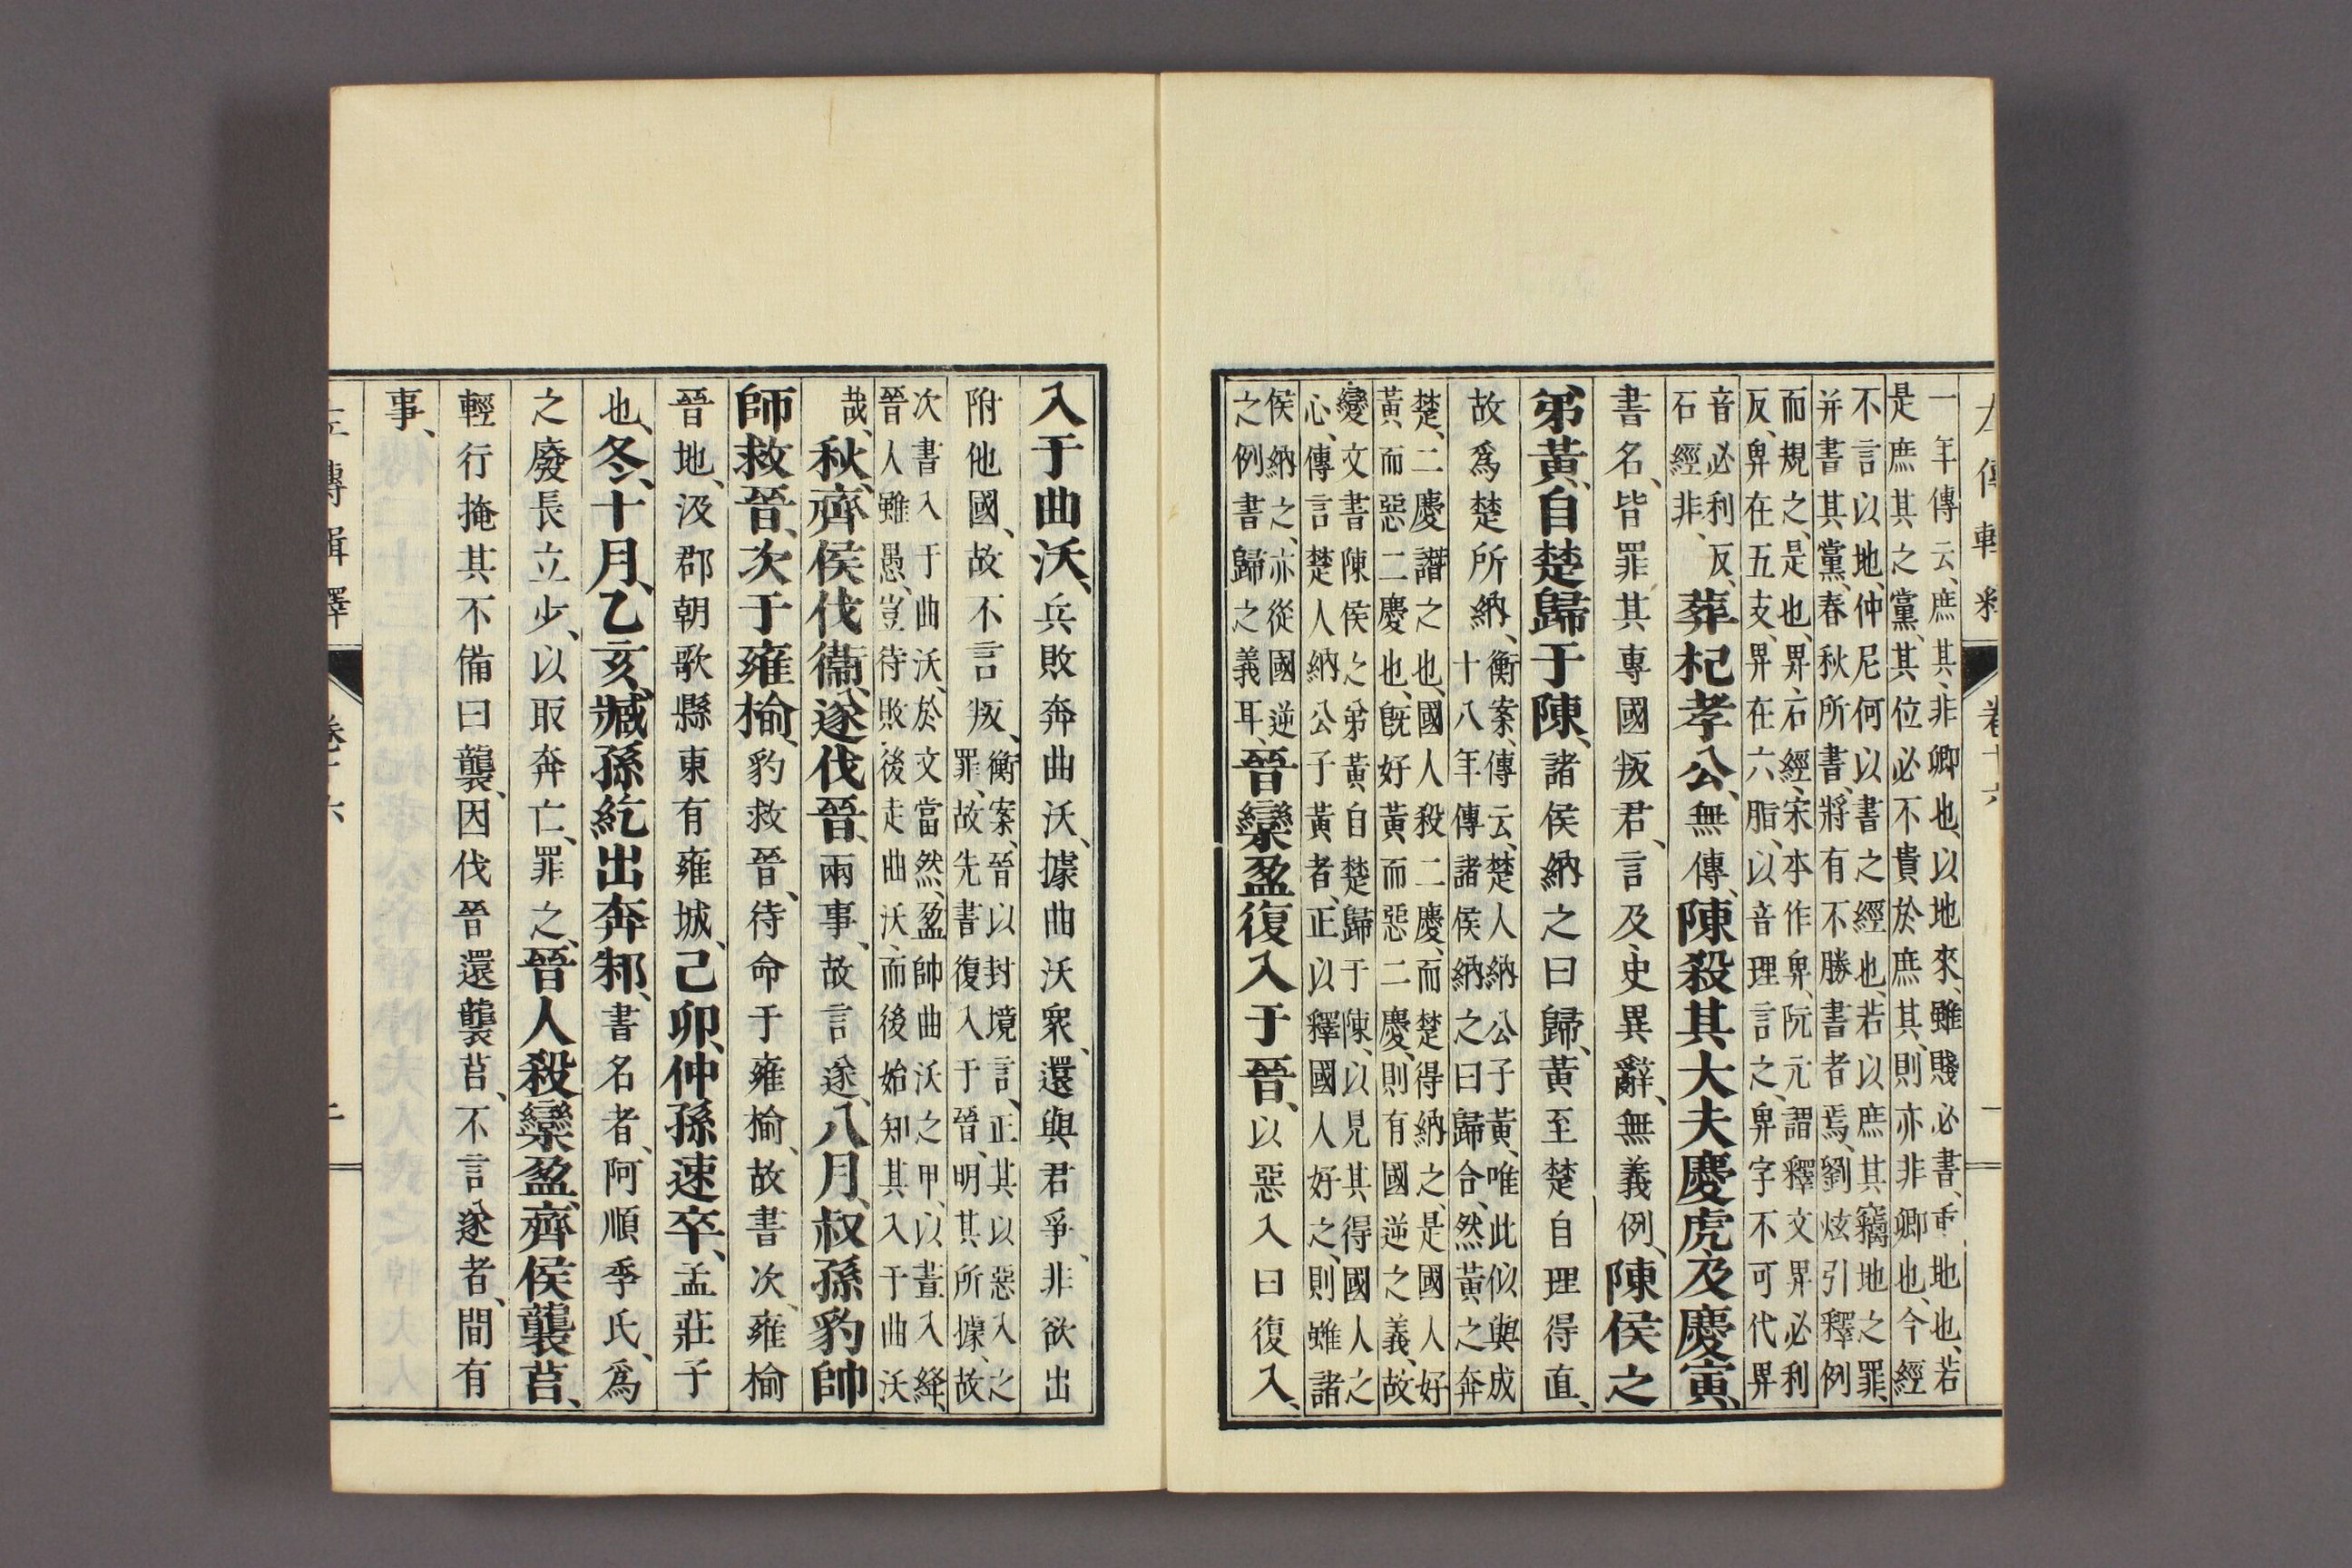 左傳輯釋　卷十六　一
一年傳云、庶其、非卿也、以地來、雖賤必書、重地也、若
是庶其之黨、其位必不貴於庶其、則亦非卿也、今經
不言以地、仲尼何以書之經也、若以庶其竊地之罪、
并書其黨、春秋所書、將有不勝書者焉、劉炫引釋例
而規之、是也、畀、石經、宋本作卑、阮元謂釋文畀必利
反、卑在五支、畀在六脂、以音理言之、卑字不可代畀
音必利反、
石經非、
葬杞孝公、無傳、陳殺其大夫慶虎及慶寅、
書名、皆罪其專國叛君、言及、史異辭、無義例、陳侯之
弟黃、自楚歸于陳、諸侯納之曰歸、黃至楚自理得直、
故爲楚所納、
衡案、傳云、楚人納公子黃、唯此似與成
十八年傳諸侯納之曰歸合、然黃之奔
楚、二慶譖之也、國人殺二慶、而楚得納之、是國人好
黃而惡二慶也、旣好黃而惡二慶、則有國逆之義、故
變文書陳侯之弟黃自楚歸于陳、以見其得國人之
心、傳言楚人納公子黃者、正以釋國人好之、則雖諸
侯納之、亦從國逆
之例書歸之義耳
晉欒盈復入于晉、以惡入曰復入、
入于曲沃、兵敗奔曲沃、據曲沃衆、還與君爭、非欲出
附他國、故不言叛、
衡案、晉以封境言、正其以惡入之
罪、故先書復入于晉、明其所據、故
次書入于曲沃、於文當然、盈帥曲沃之甲、以晝入絳、
晉人雖愚、豈待敗後走曲沃、而後始知其入于曲沃
哉、
秋、齊侯伐衞、遂伐晉、兩事、故言遂、八月、叔孫豹帥
師救晉、次于雍楡、豹救晉、待命于雍楡、故書次、雍楡
晉地、汲郡朝歌縣東有雍城、己卯、仲孫速卒、孟莊子
也、冬、十月、乙亥、臧孫紇出奔邾、書名者、阿順季氏、爲
之廢長立少、以取奔亡、罪之、晉人殺欒盈、齊侯襲莒、
輕行掩其不備曰襲、因伐晉還襲莒、不言遂者、間有
事、
左傳輯釋　卷十六